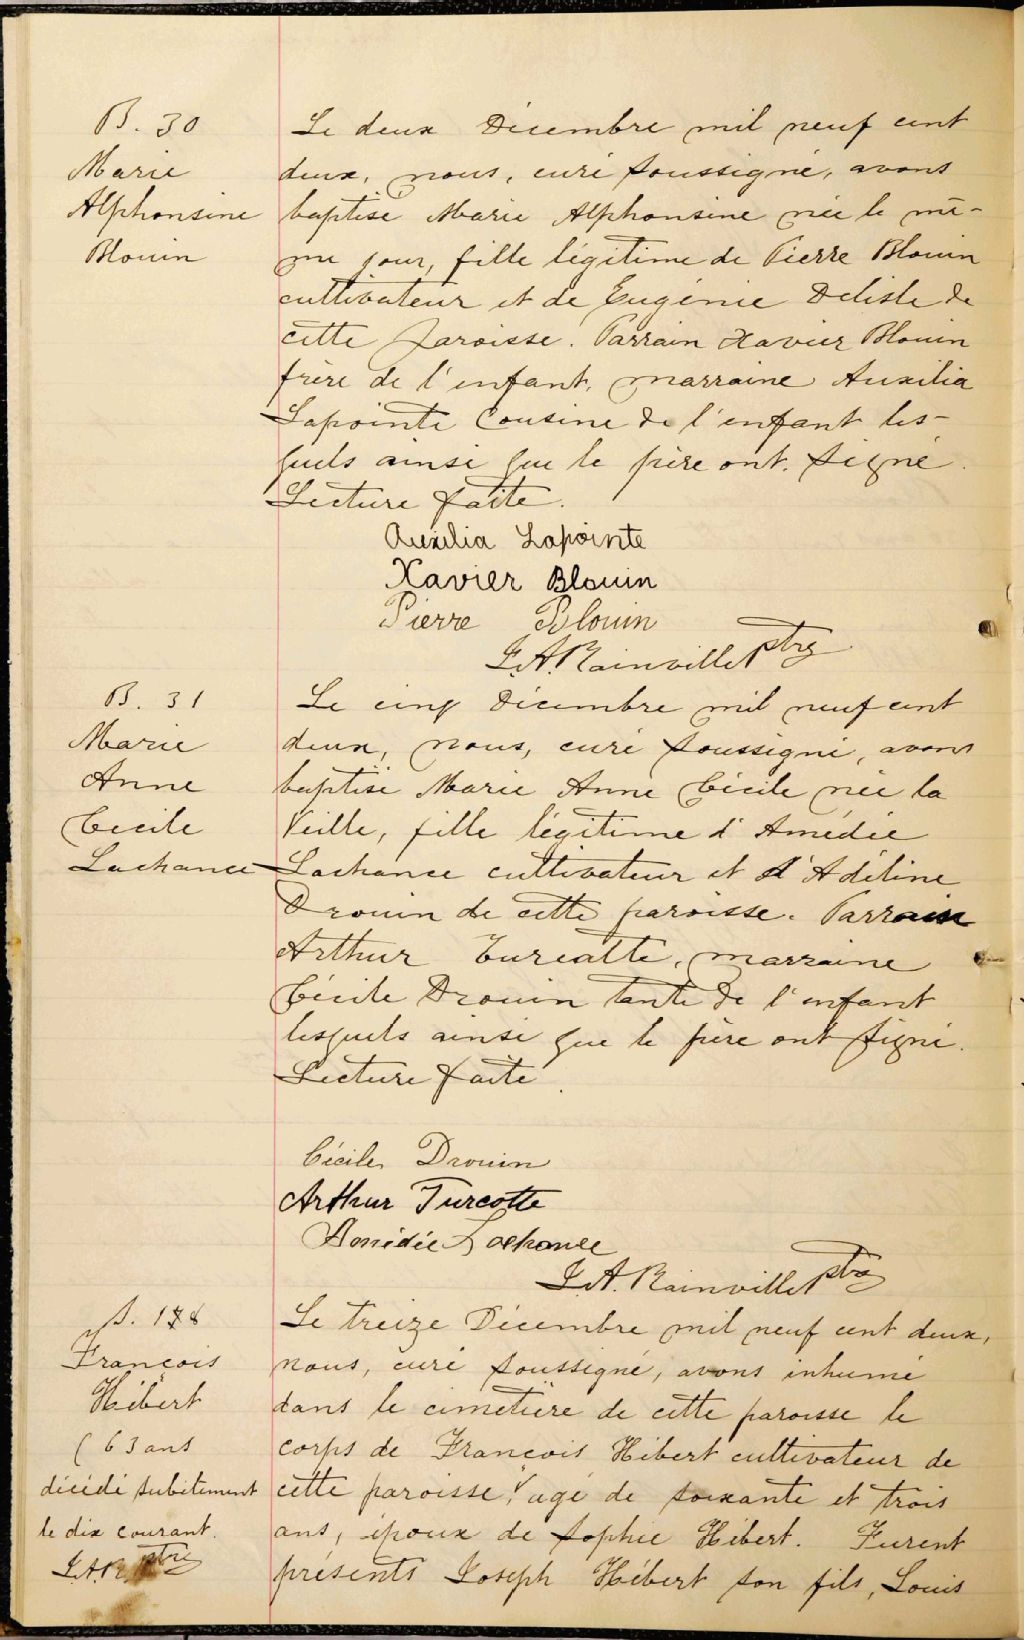 B. 30
Marie
Alphonsine
Blouin
Le deux Décembre mil neuf cent
deux, nous, curé soussigné, avons
baptisé Marie Alphonsine née le mê-
me jour, fille légitime de Pierre Blouin
cultivateur et de Eugénie Delisle de
cette paroisse. Parrain Xavier Blouin
frère de l'enfant, marraine Auxilia
Lapointe Cousine de l'enfant les-
quels ainsi que le père ont signé.
Lecture faite.
Auxilia Lapointe
Xavier Blouin
Pierre Blouin
J. A. Rainville ptre
B. 31
Marie
Anne
Cécile
Lachance
Le cinq Décembre mil neuf cent
deux, nous, curé soussigné, avons
baptisé Marie Anne Cécile née la
Veille, fille légitime d'Amédée
Lachance cultivateur et d'Adéline
Drouin de cette paroisse. Parrain
Arthur Turcotte, marraine
Cécile Drouin tante de l'enfant
lesquels ainsi que le père ont signé.
Lecture faite.
Cécile Drouin
Arthur Turcotte
Amédée Lachance
J. A. Rainville ptre
François
Hébert
( 63 ans
décédé subitement
le dix courant.
J. A. R. ptre
Le treize Décembre mil neuf cent deux,
nous, curé soussigné, avons inhumé
dans le cimetière de cette paroisse le
corps de François Hébert cultivateur de
cette paroisse, ( agé de soixante et trois
ans, époux de Sophie Hébert. Furent
présents Joseph Hébert son fils, Louis